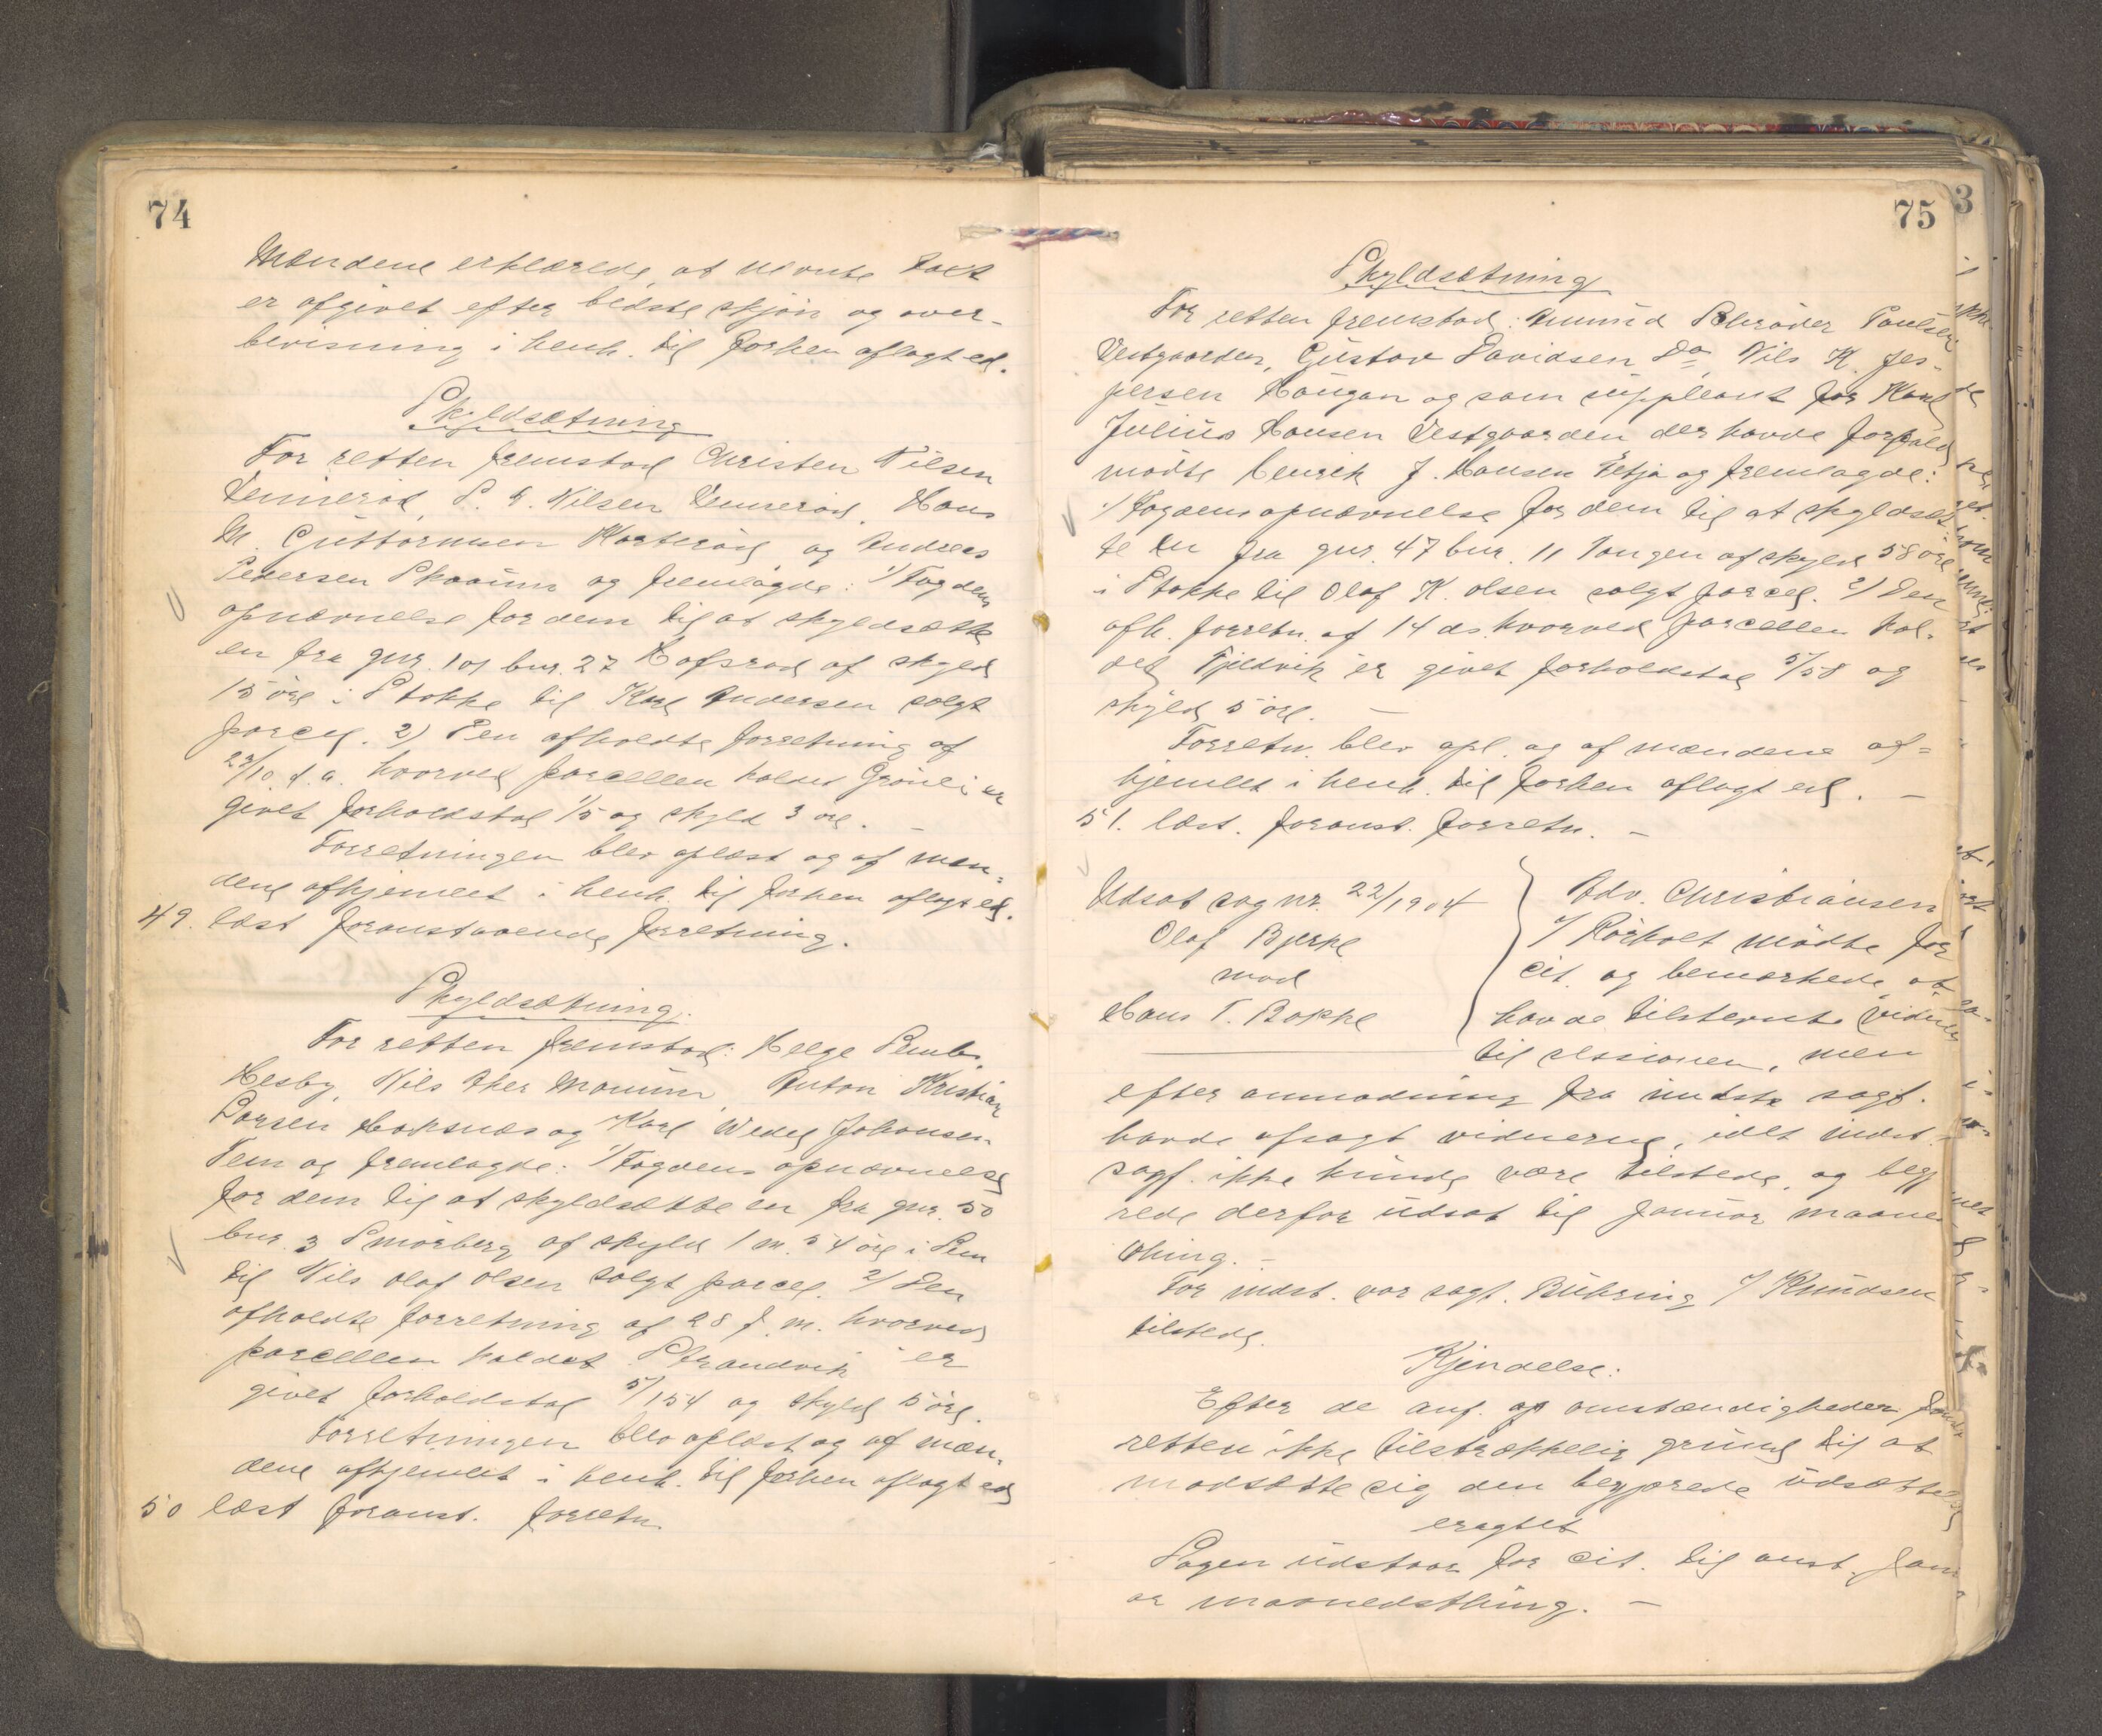 74
Mændene erklærede, at nævnte takst
er afgivet efter bedste skjøn og over-
bevisning i henh. til forhen aflagt ed.
Skyldsætning
For retten fremstod Christen Nilsen
Vennerød, S. E. Nilsen Vennerød, Hans
M. Guttormsen Korterød og Andreas
Pedersen Skaaum og fremlagde: 1/ Fogdens
opnævnelse for dem til at skyldsætte
en fra gnr. 101 bnr. 27 Hafsrød af skyld
15 øre i Stokke til Karl Andersen solgt
parcel. 2) Den afholdte forretning af
29/10 d. a. hvorved parcellen kaldet Grønli er
givet forholdstal 1/5 og skyld 3 øre. –
Forretningen blev oplæst og af mæn-
dene afhjemlet i henh. til forhen aflagt ed.
49. læst foranstaaende forretning.
Skyldsætning.
For retten fremstod: Helge Semb,
Hesby, Nils Aker Maurer Anton Kristian
Larsen Hoksnæs og Karl Wedel Johansen
Sem og fremlagde: 1/ Fogdens opnævnelse
for dem til at skyldsætte en fra gnr. 50
bnr. 3 Smørberg af skyld 1 m. 54 øre i Sem
til Nils Olaf Olsen solgt parcel. 2/ Den
afholdte forretning af 28 f. m. hvorved
parcellen kaldet Strandvik er
givet forholdstal 5/154 og skyld 5 øre.
Forretningen blev oplæst og af mæn-
dene afhjemlet i henh. til forhen aflagt ed
50 læst foranst. forretn.
75
Skyldsætning
For retten fremstod: Amund Schrøder Paulsen
Vestgaarden, Gustav Davidsen Do, Nils K. Jes-
persen Haugan og som suppleant for Karl
Julius Hansen Vestgaarden der havde forfald
mødte Henrik J. Hansen Melsom og fremlagde:
1/ Fogdens opnævnelse for dem til at skyldsæt-
te en fra gnr. 47 bnr. 11 Tangen af skyld 58 øre
i Stokke til Olaf K. Olsen solgt parcel. 2/ Den
afh. forretn. af 14 ds. hvorved parcellen kal-
det Fjeldvik er givet forholdstal 5/58 og
skyld 5 øre. –
Forretn. blev opl. og af mændene af-
hjemlet i henh. til forhen aflagt ed. –
51. læst. foranst. forretn. –
Udsat sag nr. 22/1904
Olaf Bjerke
mod
Hans T. Bakke
Adv. Christiansen
v/ Rørholt mødte for
cit. og bemærkede, at
havde tilstevnt vidner
til sessionen, men
efter anmodning fra indst. sagf.
havde afsagt vidnerne, idet indst.
sagf. ikke kunde være tilstede, og begj
rede derfor udsat til januar maaneds
thing. –
For indst. var sagf. Bühring v/ Knudsen
tilstede.
Kjendelse:
Efter de anf. op omstændigheder fandt
retten ikke tilstrækkelig grund til at
modsætte sig den begjærede udsættelse
eragtet
Sagen udstaar for cit. til anst. Janu
ar maanedsthing. –